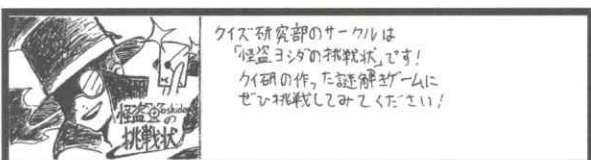 怪盗Yoshidaの
挑戦状
クイズ研究部のサークルは
「怪盗ヨシダの挑戦状」です!
クイ研の作った謎解きゲームに
ぜひ挑戦してみてください!